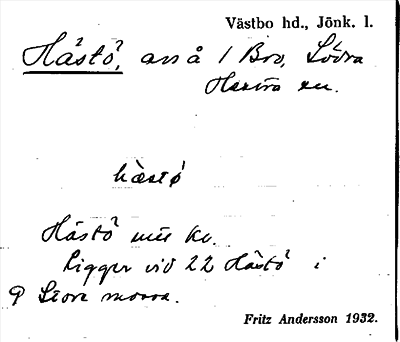 Västbo hd., Jönk. l.
Hästö, avs å 1 Bro, Södra
Hestra sn.
hæstø
Hästö
Ligger vid 22 Hästö i
Stora mossa.
Fritz Andersson 1932.